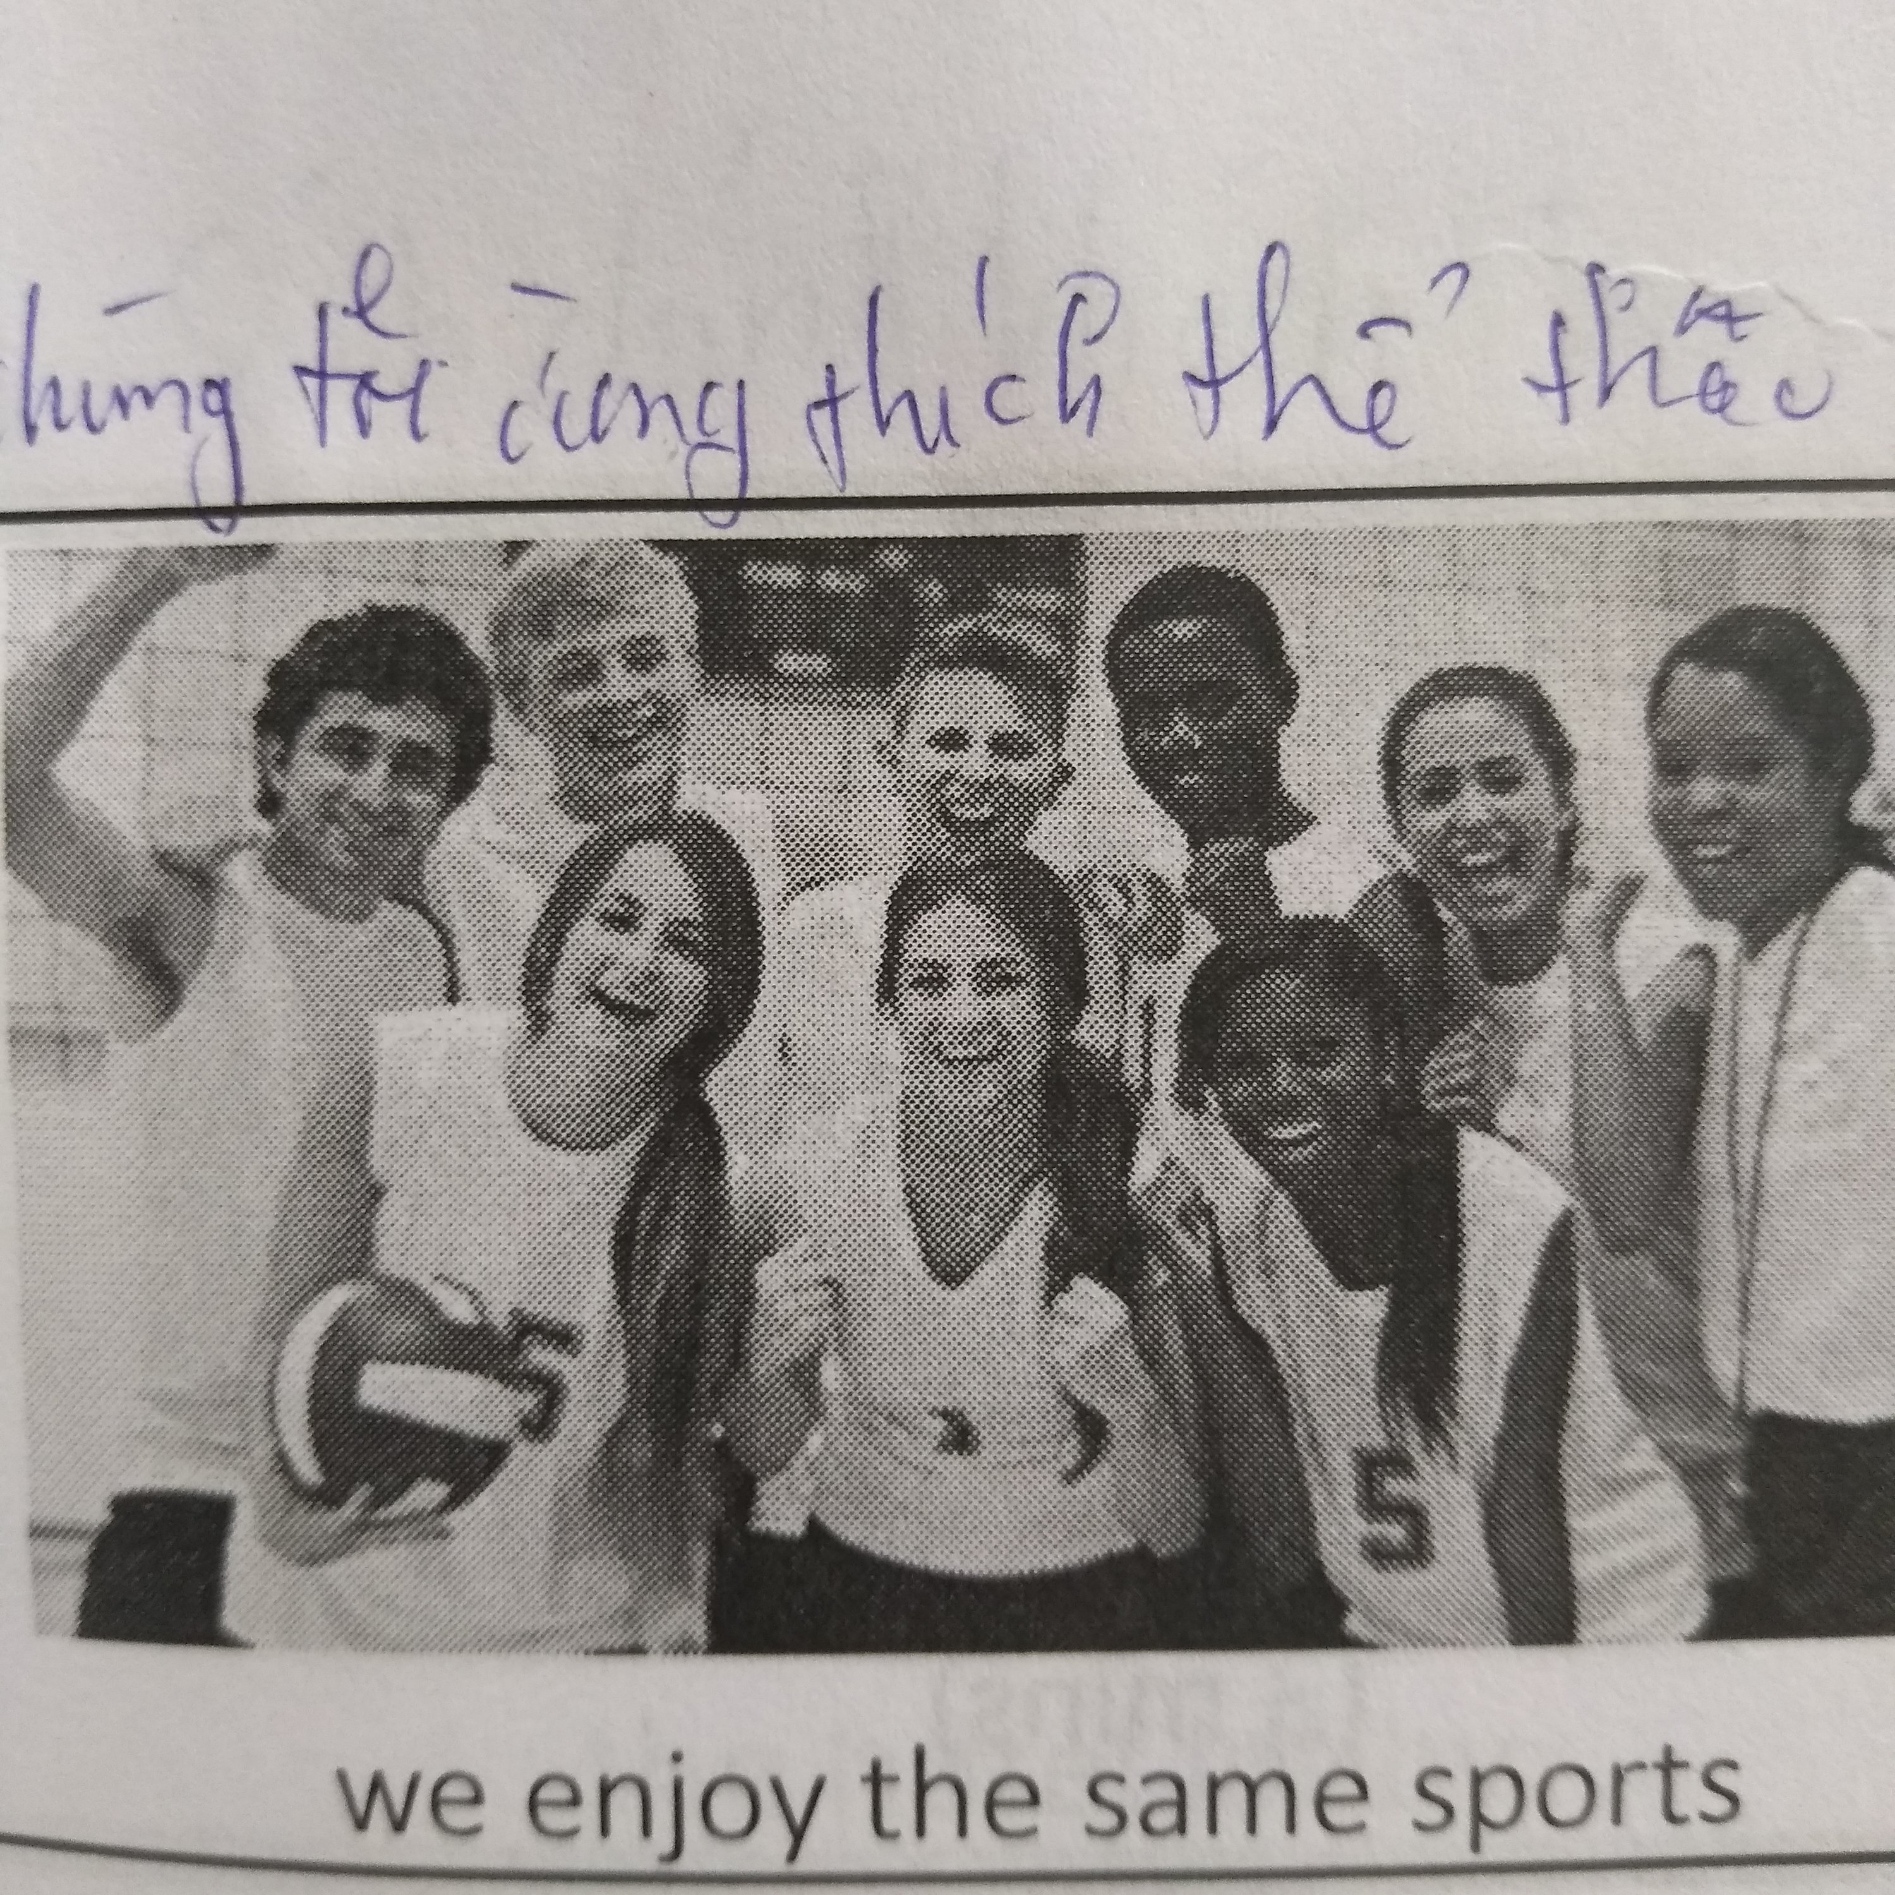 chúng tôi cùng thích thể thao
5
5
we enjoy the same sports